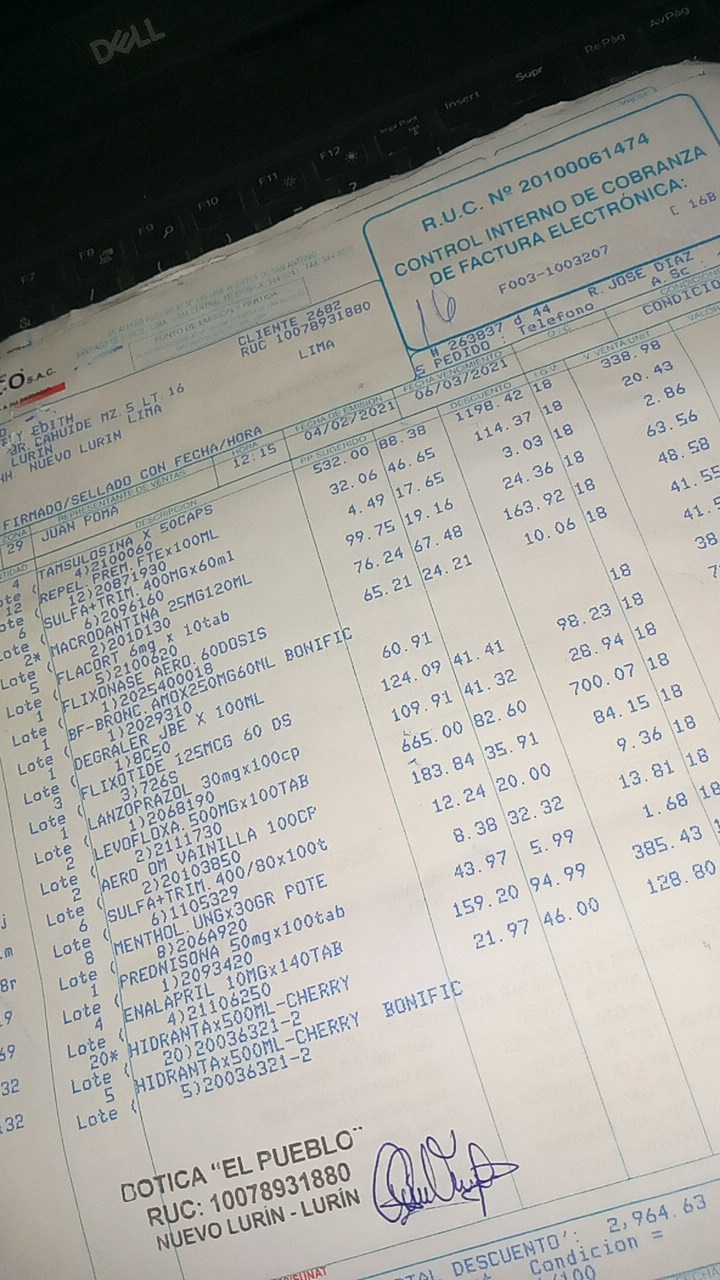 DELL
Supr
RePág
AvPág
Insert
F7
F8
F9
F10
F11
F12
R.U.C. Nº 20100061474
CONTROL INTERNO DE COBRANZA
DE FACTURA ELECTRÓNICA:
F003-1003207
[ 16B
16
# 263837 d 44 R. JOSE DIAZ
S PEDIDO : Telefono A.Sc
PUNTO DE EMISIÓN / PARTIDA
CLIENTE 2682
RUC 10078931880
LIMA
O S.A.C.
Y EDITH
JR. CAHUIDE MZ.5 LT.16
LURIN LIMA
HH. NUEVO LURIN
FIRMADO/SELLADO CON FECHA/HORA
ZONA REPRESENTANTE DE VENTAS HORA FECHA DE EMISIÓN FECHA VENCIMIENTO O.C. CONDICIO
29 JUAN POMA 12:15 04/02/2021 06/03/2021
DESCRIPCIÓN PP SUGERIDO % DESCUENTO I.G.V V VENTA UNIT
4 TAMSULOSINA X 50CAPS 532.00 88.38 1198.42 18 338.98
Lote ( 4)2100060
12 REPEL. PREM.FTEx100ML 32.06 46.65 114.37 18 20.43
Lote ( 12)20871930
6 SULFA+TRIM.400MGx60ml 4.49 17.65 3.03 18 2.86
Lote ( 6)2096160
2* MACRODANTINA 25MG120ML 99.75 19.16 24.36 18 63.56
Lote ( 2)201D130
5 FLACORT 6mg x 10tab 76.24 67.48 163.92 18 48.58
Lote ( 5)2100620
1 FLIXONASE AERO.60DOSIS 65.21 24.21 10.06 18 41.55
Lote ( 1)2025400018
1 BF-BRONC.AMOX250MG60NL BONIFIC
Lote ( 1)2029310
1 DEGRALER JBE X 100ML 60.91 18
Lote ( 1)8C50
3 FLIXOTIDE 125MCG 60 DS 124.09 41.41 98.23 18
Lote ( 3)726S
1 LANZOPRAZOL 30mgx100cp 109.91 41.32 28.94 18
Lote ( 1)2068190
2 LEVOFLOXA.500MGx100TAB 665.00 82.60 700.07 18
Lote ( 2)2111730
2 AERO OM VAINILLA 100CP 183.84 35.91 84.15 18
Lote ( 2)20103850
6 SULFA+TRIM.400/80x100t 12.24 20.00 9.36 18
Lote ( 6)1105329
8 MENTHOL.UNGx30GR POTE 8.38 32.32 13.81 18
Lote ( 8)206A920
1 PREDNISONA 50mgx100tab 43.97 5.99 1.68 18
Lote ( 1)2093420
4 ENALAPRIL 10MGx140TAB 159.20 94.99 385.43
Lote ( 4)21106250
20* HIDRANTAx500ML-CHERRY 21.97 46.00 128.80
Lote ( 20)20036321-2
5 HIDRANTAx500ML-CHERRY BONIFIC
Lote ( 5)20036321-2
BOTICA "EL PUEBLO"
RUC: 10078931880
NUEVO LURÍN - LURÍN
TAL DESCUENTO: 2,964.63
Condicion =
/SUNAT